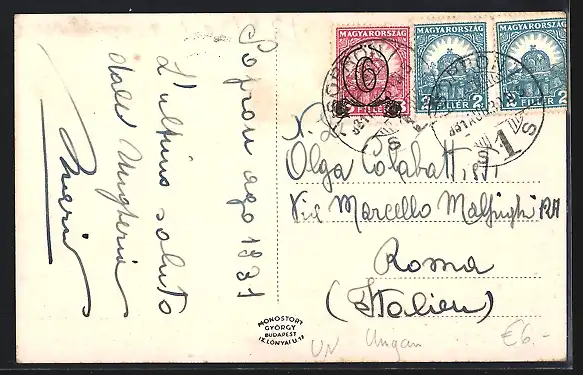 Sopron ago 1931
L'ultimo saluto
dall' Ungheria
Maria
MAGYARORSZÁG
6
FILLÉR
MAGYARORSZÁG
2 FILLÉR 2
MAGYARORSZÁG
2 FILLÉR 2
SOPRON
1
Olga Colabatti
Via Marcello Malpighi 12A
Roma
(Italien)
MONOSTORY
GYÖRGY
BUDAPEST
IX. LÓNYAI U. 17
UV Ungarn
€6.-